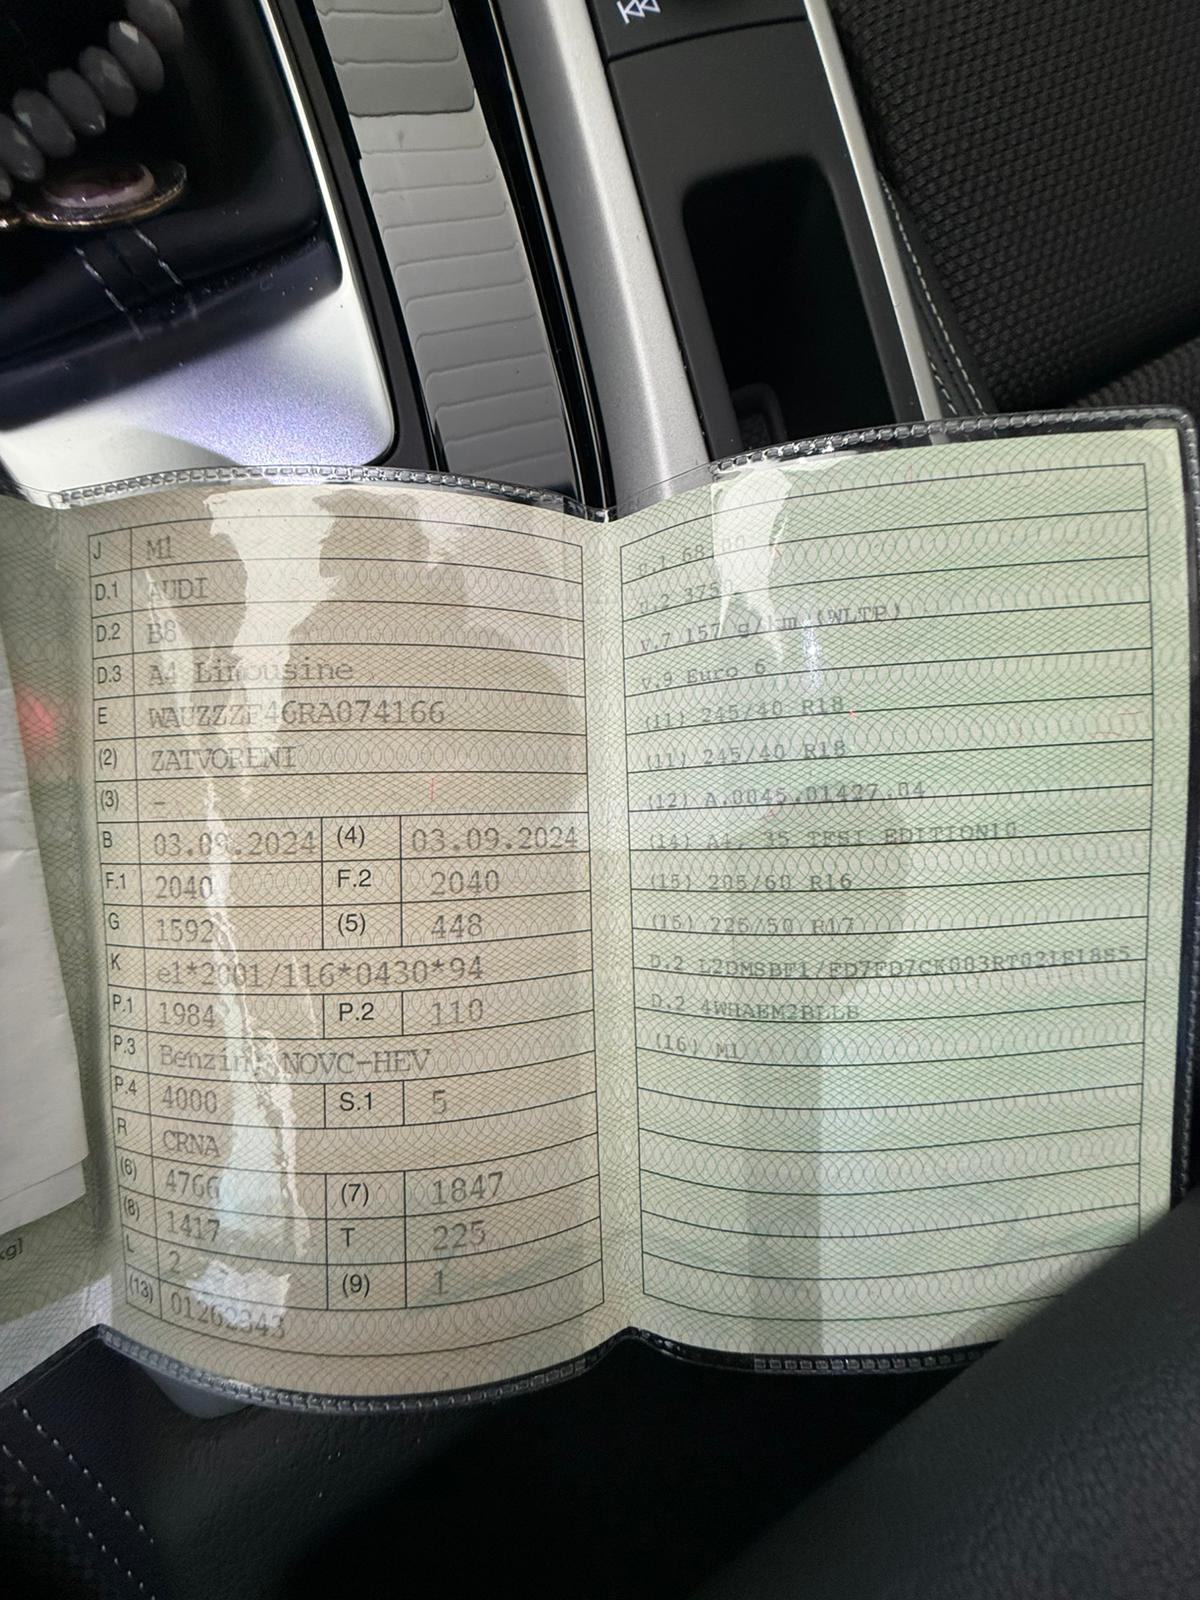 J M1
D.1 AUDI
D.2 B8
D.3 A4 Limousine
E WAUZZZF46RA074166
(2) ZATVORENI
(3) –
B 03.09.2024 (4) 03.09.2024
F.1 2040 F.2 2040
G 1592 (5) 448
K e1*2001/116*0430*94
P.1 1984 P.2 110
P.3 Benzin, NOVC-HEV
P.4 4000 S.1 5
R CRNA
(6) 4766 (7) 1847
(8) 1417 T 225
L 2 (9) 1
(13) 01262343
kg]
u.1 68
u.2 375
V.7 157 g/km (WLTP)
V.9 Euro 6
(11) 245/40 R18
(11) 245/40 R18
(12) A.0045.01427.04
(14) A4, 35 TFSI EDITION10
(15) 205/60 R16
(15) 225/50 R17
D.2
D.2
(16) M1